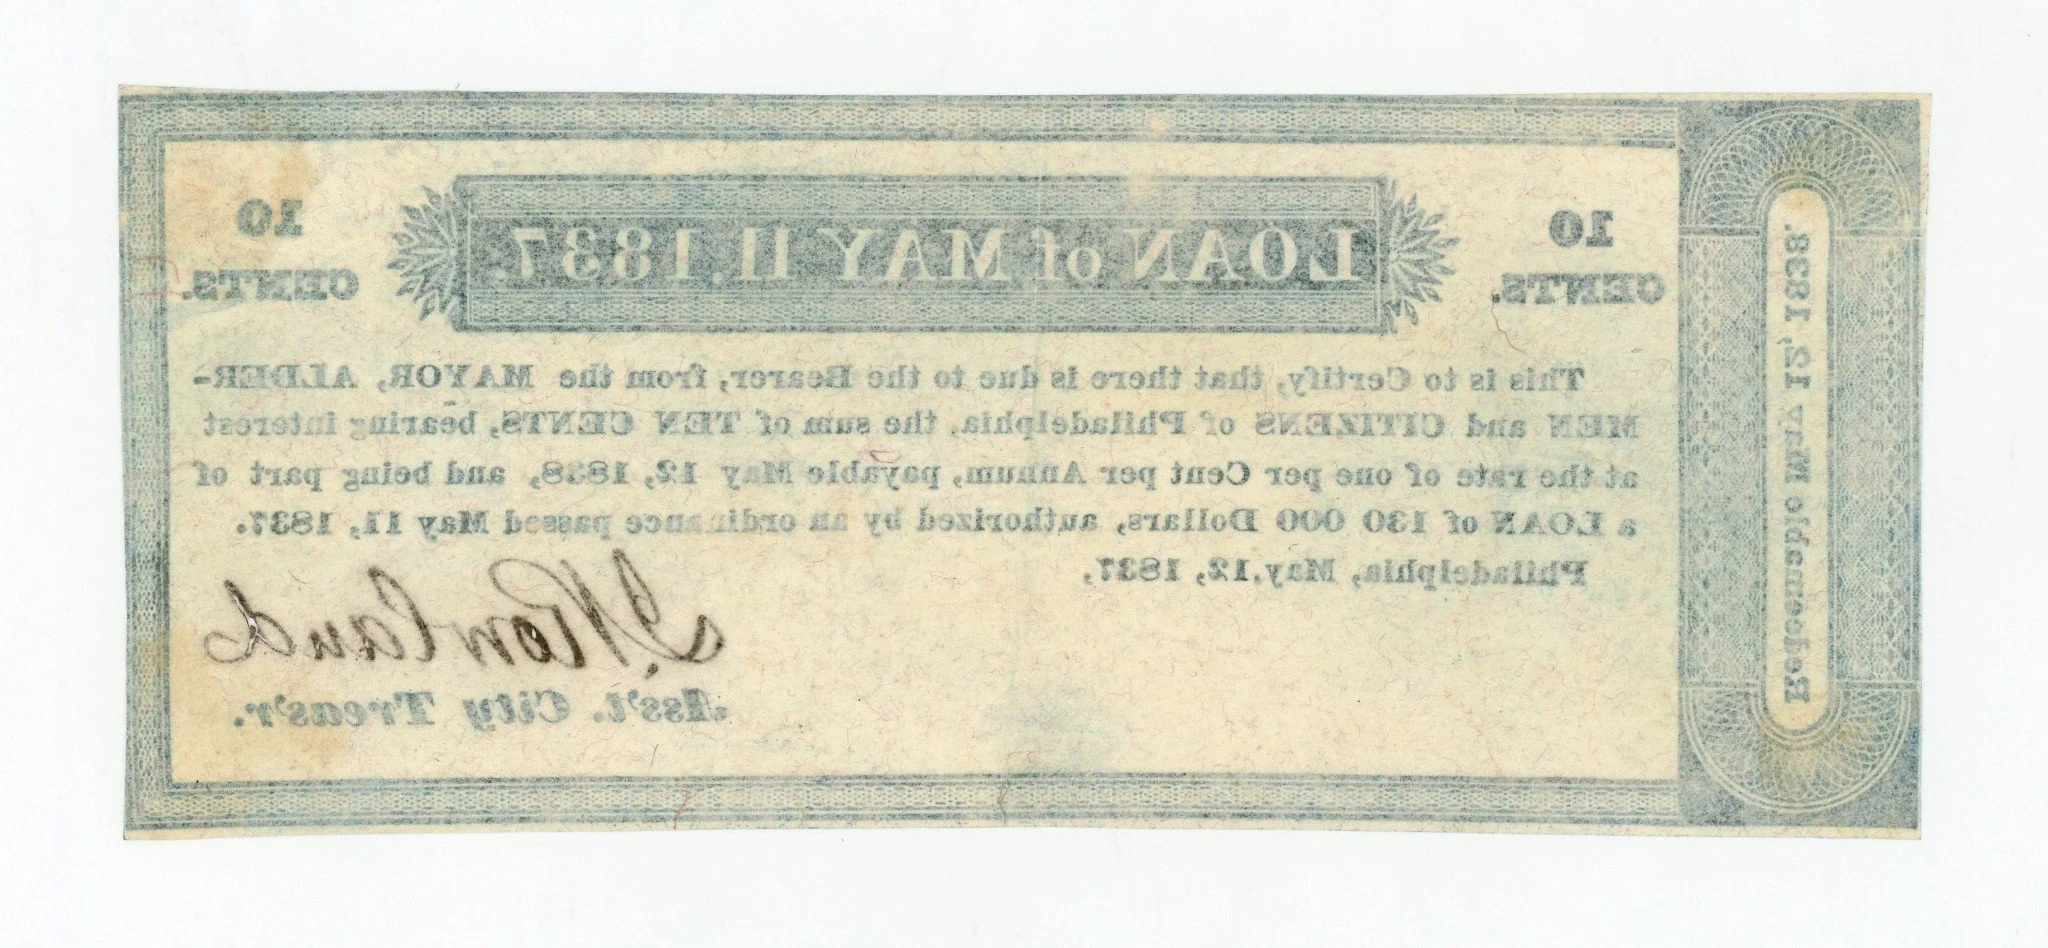 10
CENTS.
LOAN of MAY 11. 1837.
10
CENTS.
This is to Certify, that there is due to the Bearer, from the MAYOR, ALDER-
MEN and CITIZENS of Philadelphia, the sum of TEN CENTS, bearing interest
at the rate of one per Cent per Annum, payable May 12, 1838, and being part of
a LOAN of 130 000 Dollars, authorized by an ordinance passed May 11, 1837.
Philadelphia, May, 12, 1837,
Rowland
Ass't. City Treas'r.
Redeemable May 12, 1838.